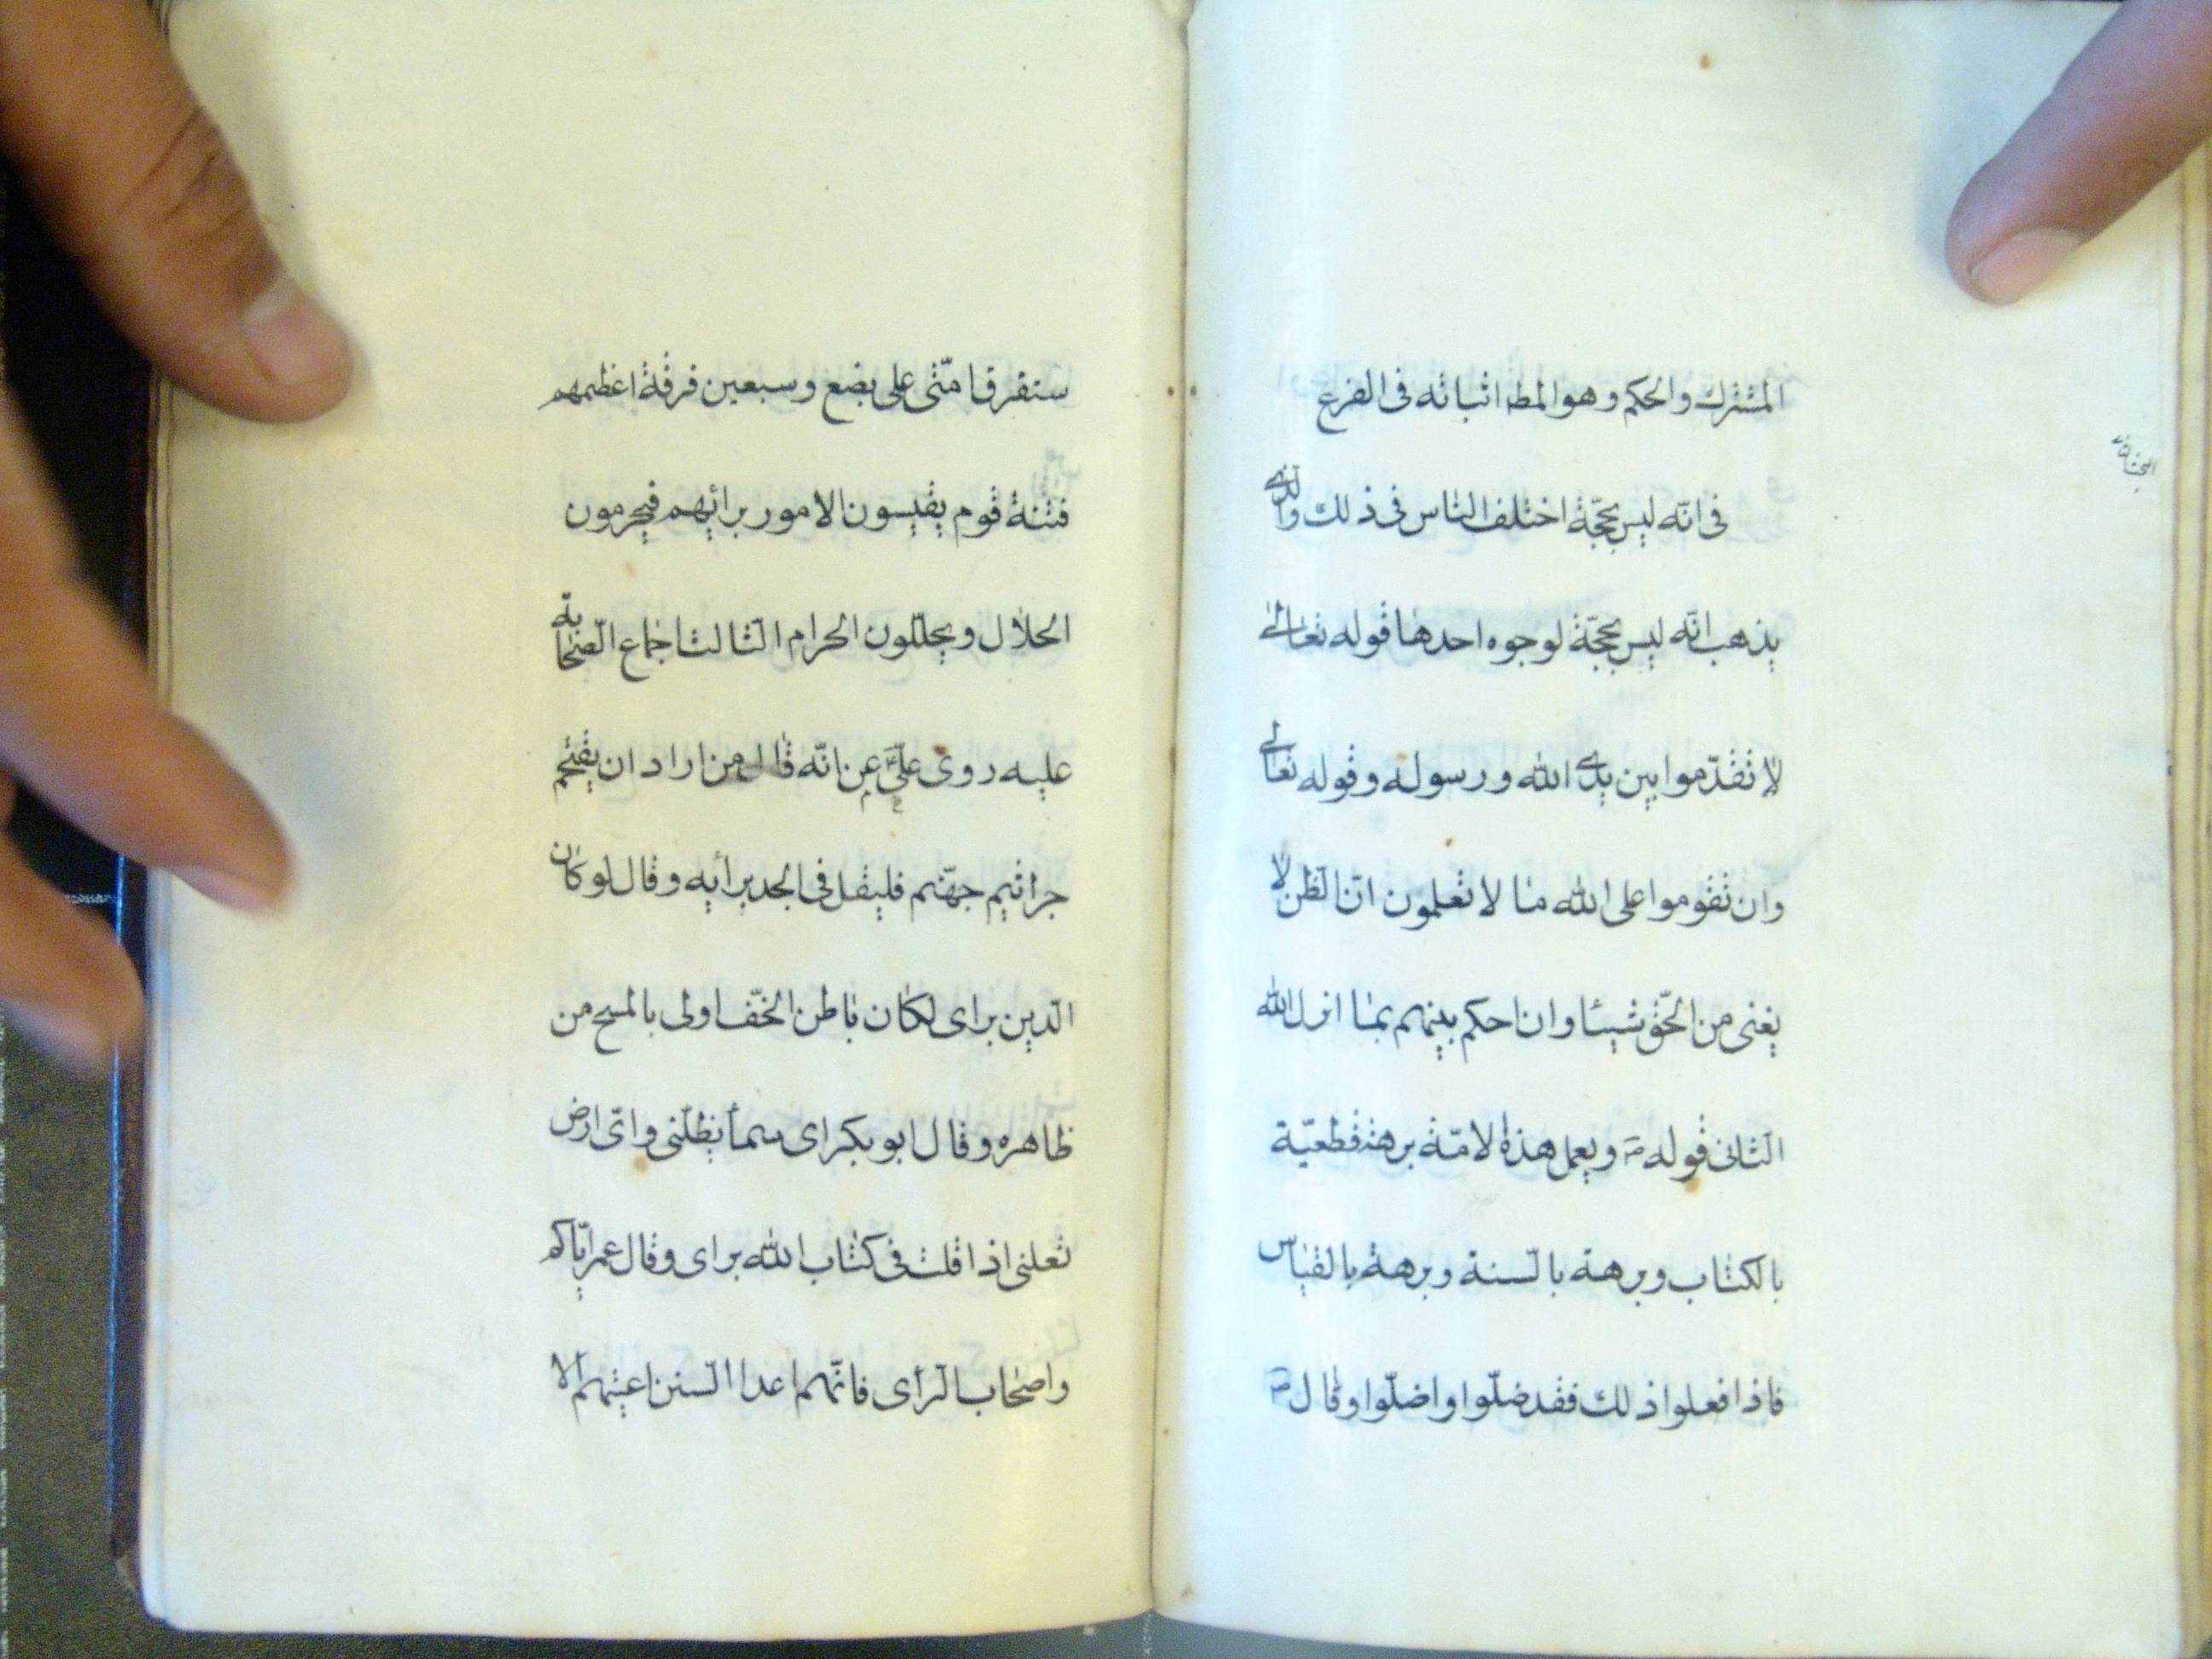 المشترك والحكم وهو المط اثباته فى الفرع
البحث الثانى
فى انّه ليس بحجّة اختلف النّاس فى ذلك والّذى
يذهب انّه ليس بحجّة لوجوه احدها قوله تعالى
لا تقدّموا بين يدى الله ورسوله وقوله تعالى
وان تقوموا على الله ما لا تعلمون انّ الظن لا
يغنى من الحقّ شيئا وان احكم بينهم بما انزل الله
الثانى قوله ص ويعمل هذه الامّة برهة قطعيّة
بالكتاب وبرهة بالسّنة وبرهة بالقياس
فاذا فعلوا ذلك فقد ضلّوا واضلّوا وقال ص
ستفرق امّتى على بضع وسبعين فرقة اعظمهم
فتنة قوم يقيسون الامور برائهم فيحرمون
الحلال ويحلّلون الحرام الثّالث اجماع الصّحابة
عليه روى علىّ ع انّه قال من اراد ان يقتحم
جراثيم جهنّم فليقل فى الجد برأيه وقال لو كان
الدّين براى لكان باطن الخفّ اولى بالمسح من
ظاهره وقال ابو بكر اى سمأ تظلّنى واىّ ارض
تعلنى اذا قلت فى كتاب الله براى وقال عمر ايّاكم
واصحاب الرّأى فانّهم اعدا السّنن اعيتهم الا